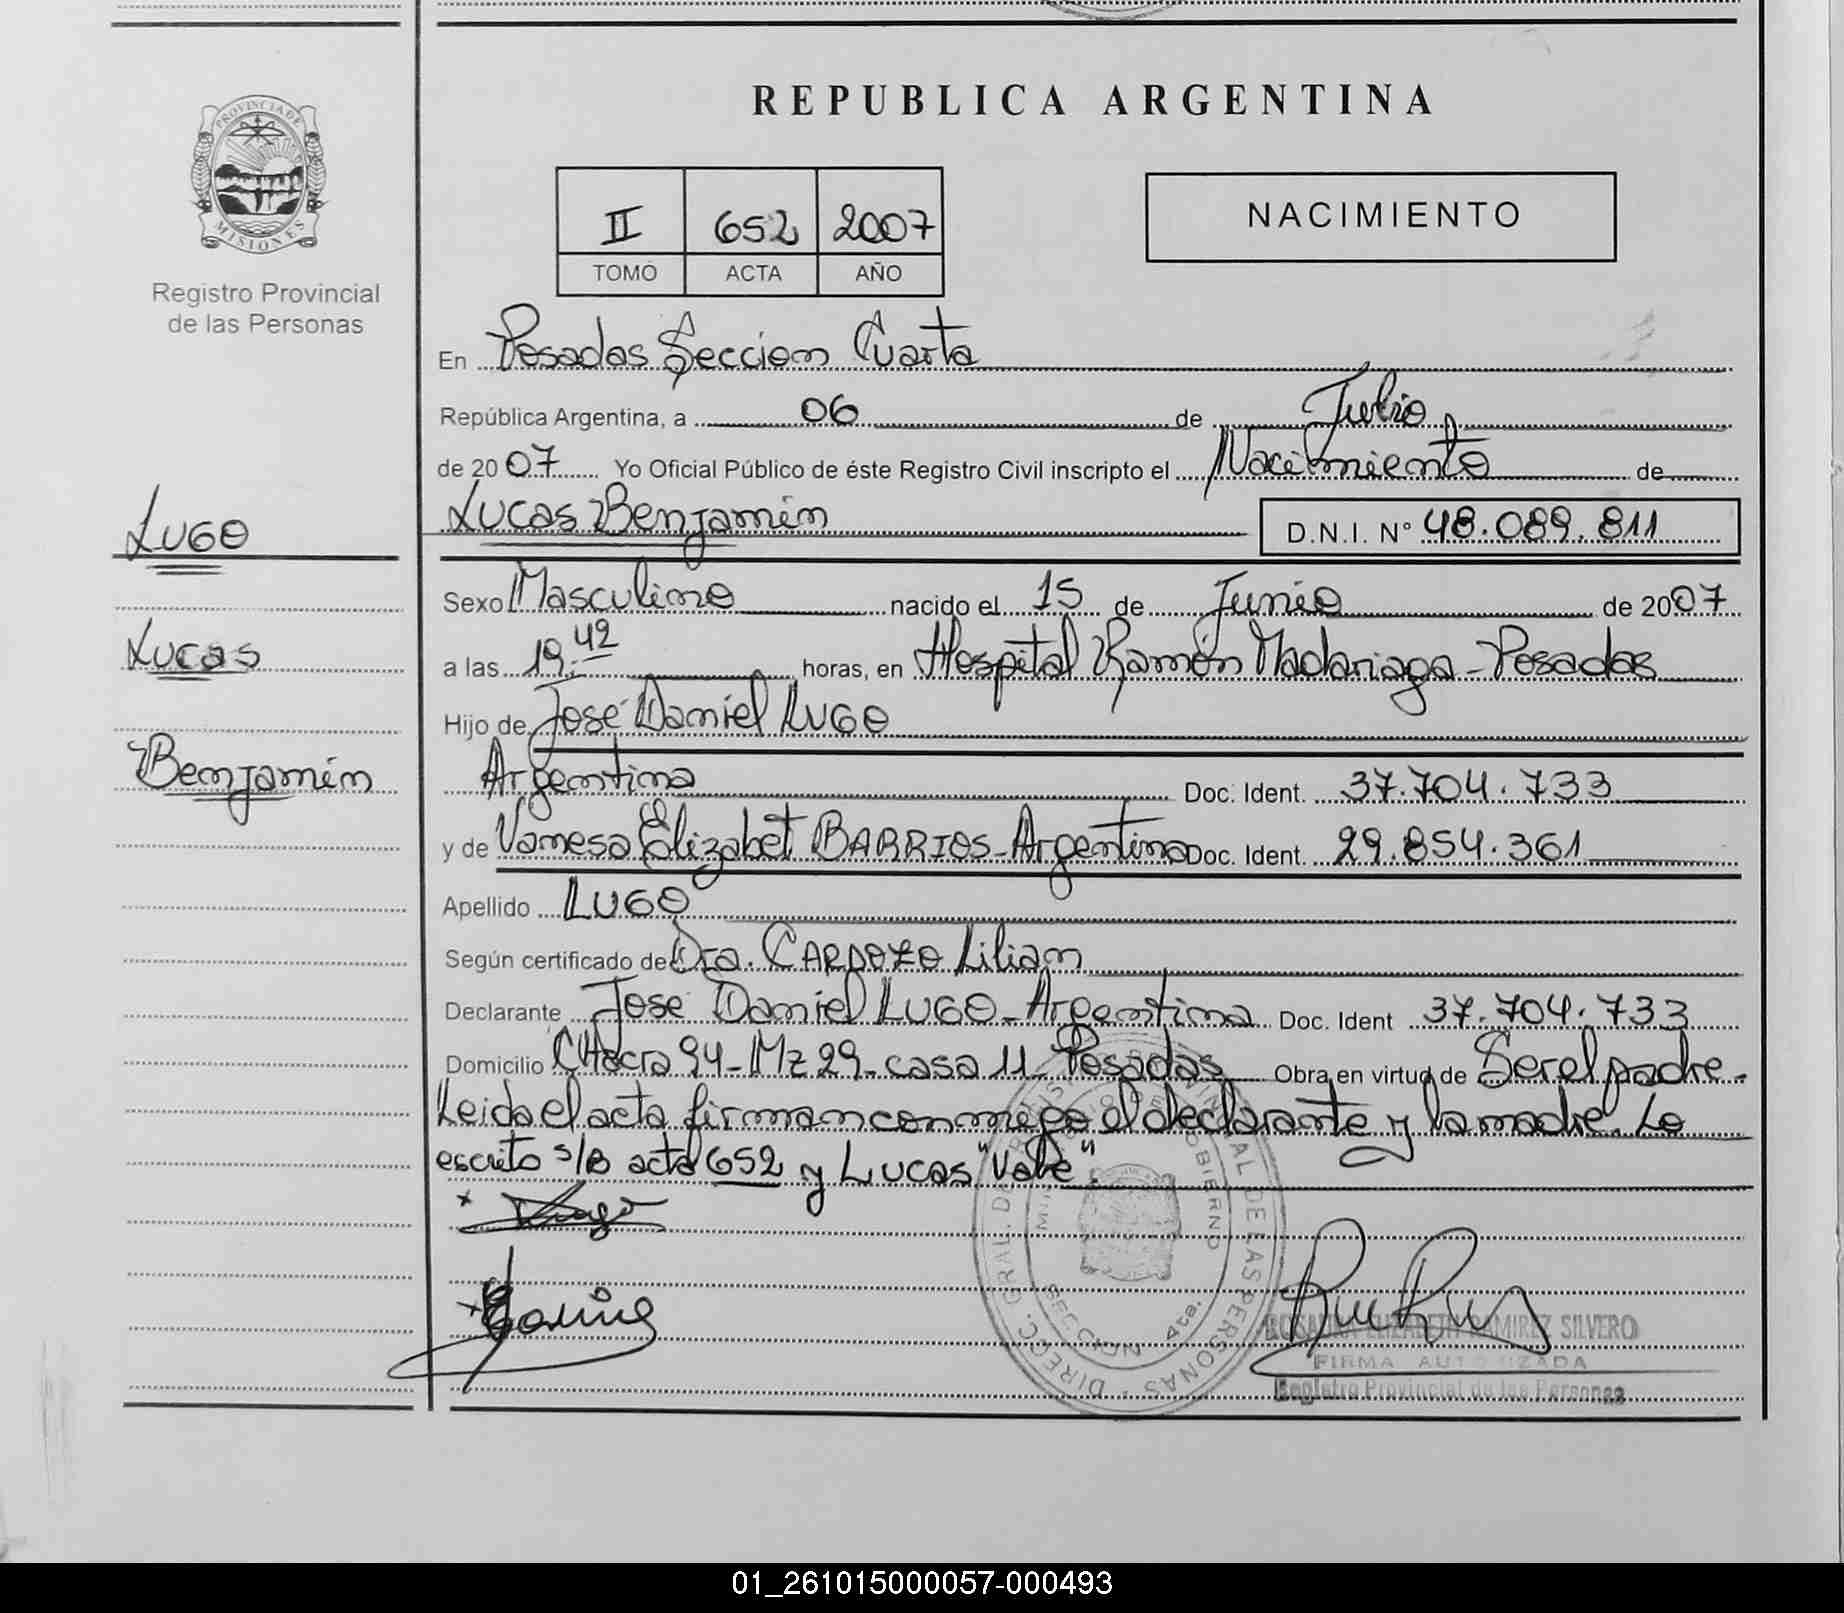 REPUBLICA ARGENTINA
PROVINCIA DE
MISIONES
Registro Provincial
de las Personas
II 652 2007
TOMO ACTA AÑO
NACIMIENTO
En Posadas Seccion Cuarta
República Argentina, a 06 de Julio
de 2007 Yo Oficial Público de éste Registro Civil inscripto el Nacimiento de
Lucas Benjamín D.N.I. N° 48.089.811
LUGO
Lucas
Benjamín
Sexo Masculino nacido el 15 de Junio de 2007
a las 19:42 horas, en Hospital Ramón Madariaga - Posadas
Hijo de José Daniel LUGO
Argentina Doc. Ident. 37.704.733
y de Vanesa Elizabet BARRIOS - Argentina Doc. Ident. 29.854.361
Apellido LUGO
Según certificado de Dra. CARDOZO Lilian
Declarante José Daniel LUGO - Argentina Doc. Ident 37.704.733
Domicilio CHacra 94 - Mz 29 - casa 11 - Posadas Obra en virtud de Ser el padre -
Leida el acta firman conmigo el declarante y la madre. Lo
escrito s/B acta 652 y Lucas "Vale".
DIRECC. GRAL. DEL REG. PROVINCIAL DE LAS PERSONAS
GOBIERNO
SECCION 4ta.
ROSANNA ELIZABETH RAMIREZ SILVERO
FIRMA AUTORIZADA
Registro Provincial de las Personas
01_261015000057-000493